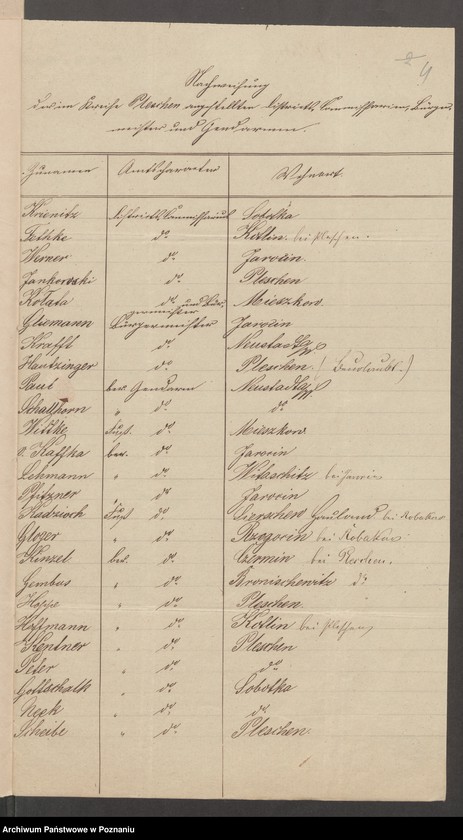 Nachweisung
der im Kreise Pleschen angestellten Districts-Commissarien, Bürger-
meister und Gendarmen.
Zunamen Amtscharacter Wohnort.
Krienitz Districts-Commissarius Sobotka
Tethke do. Kotlin bei Pleschen.
Werner do. Jarocin.
Jankowski do. Pleschen
Kolata do. und Bür- Mieszkow
germeister
Gliemann Bürgermeister Jarocin
Krafft do. Neustadt a/W
Hautzinger do. Pleschen (beurlaubt.)
Paul ber. Gendarm Neustadt a/W
Schallhorn " do. do.
Wittke Fußt. do. Mieszkow
v. Kaffka ber. do. Jarocin
Lehmann " do. Witaschitz bei Jarocin
Pfitzner " do. Jarocin
Kadzioch Fußt. do. Hauland bei Kobakow
Gloger " do. Rzegocin bei Kobakow
Kinzel ber. do. Czermin bei Pleschen.
Gembus " do. Bronischewitz do.
Hoppe " do. Pleschen.
Hoffmann " do. Kotlin bei Pleschen
Kentner " do. Pleschen
Peter " do. do.
Gottschalk " do. Sobotka
Neek " do. do.
Scheibe " do. Pleschen.
Archiwum Państwowe w Poznaniu